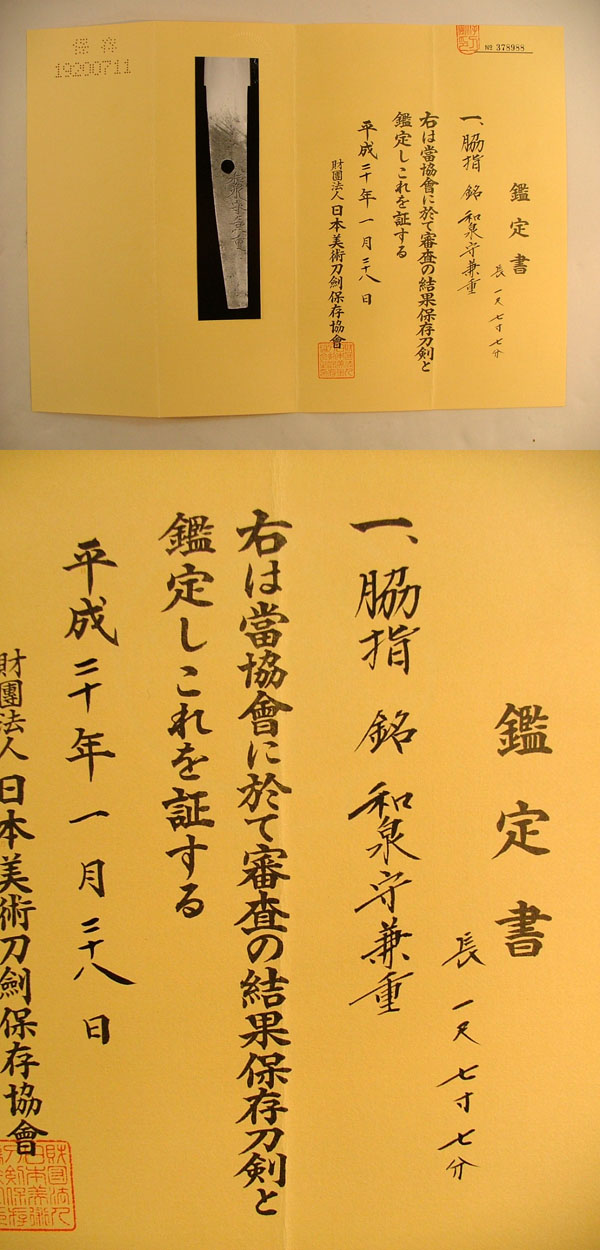 保存
19200711
№ 378988
鑑定書
長 一尺七寸七分
一、脇指 銘 和泉守兼重
右は當協會に於て審査の結果保存刀剣と
鑑定しこれを証する
平成二十年一月二十八日
財團法人 日本美術刀剣保存協會
鑑定書
長 一尺七寸七分
一、脇指 銘 和泉守兼重
右は當協會に於て審査の結果保存刀剣と
鑑定しこれを証する
平成二十年一月二十八日
財團法人 日本美術刀剣保存協會